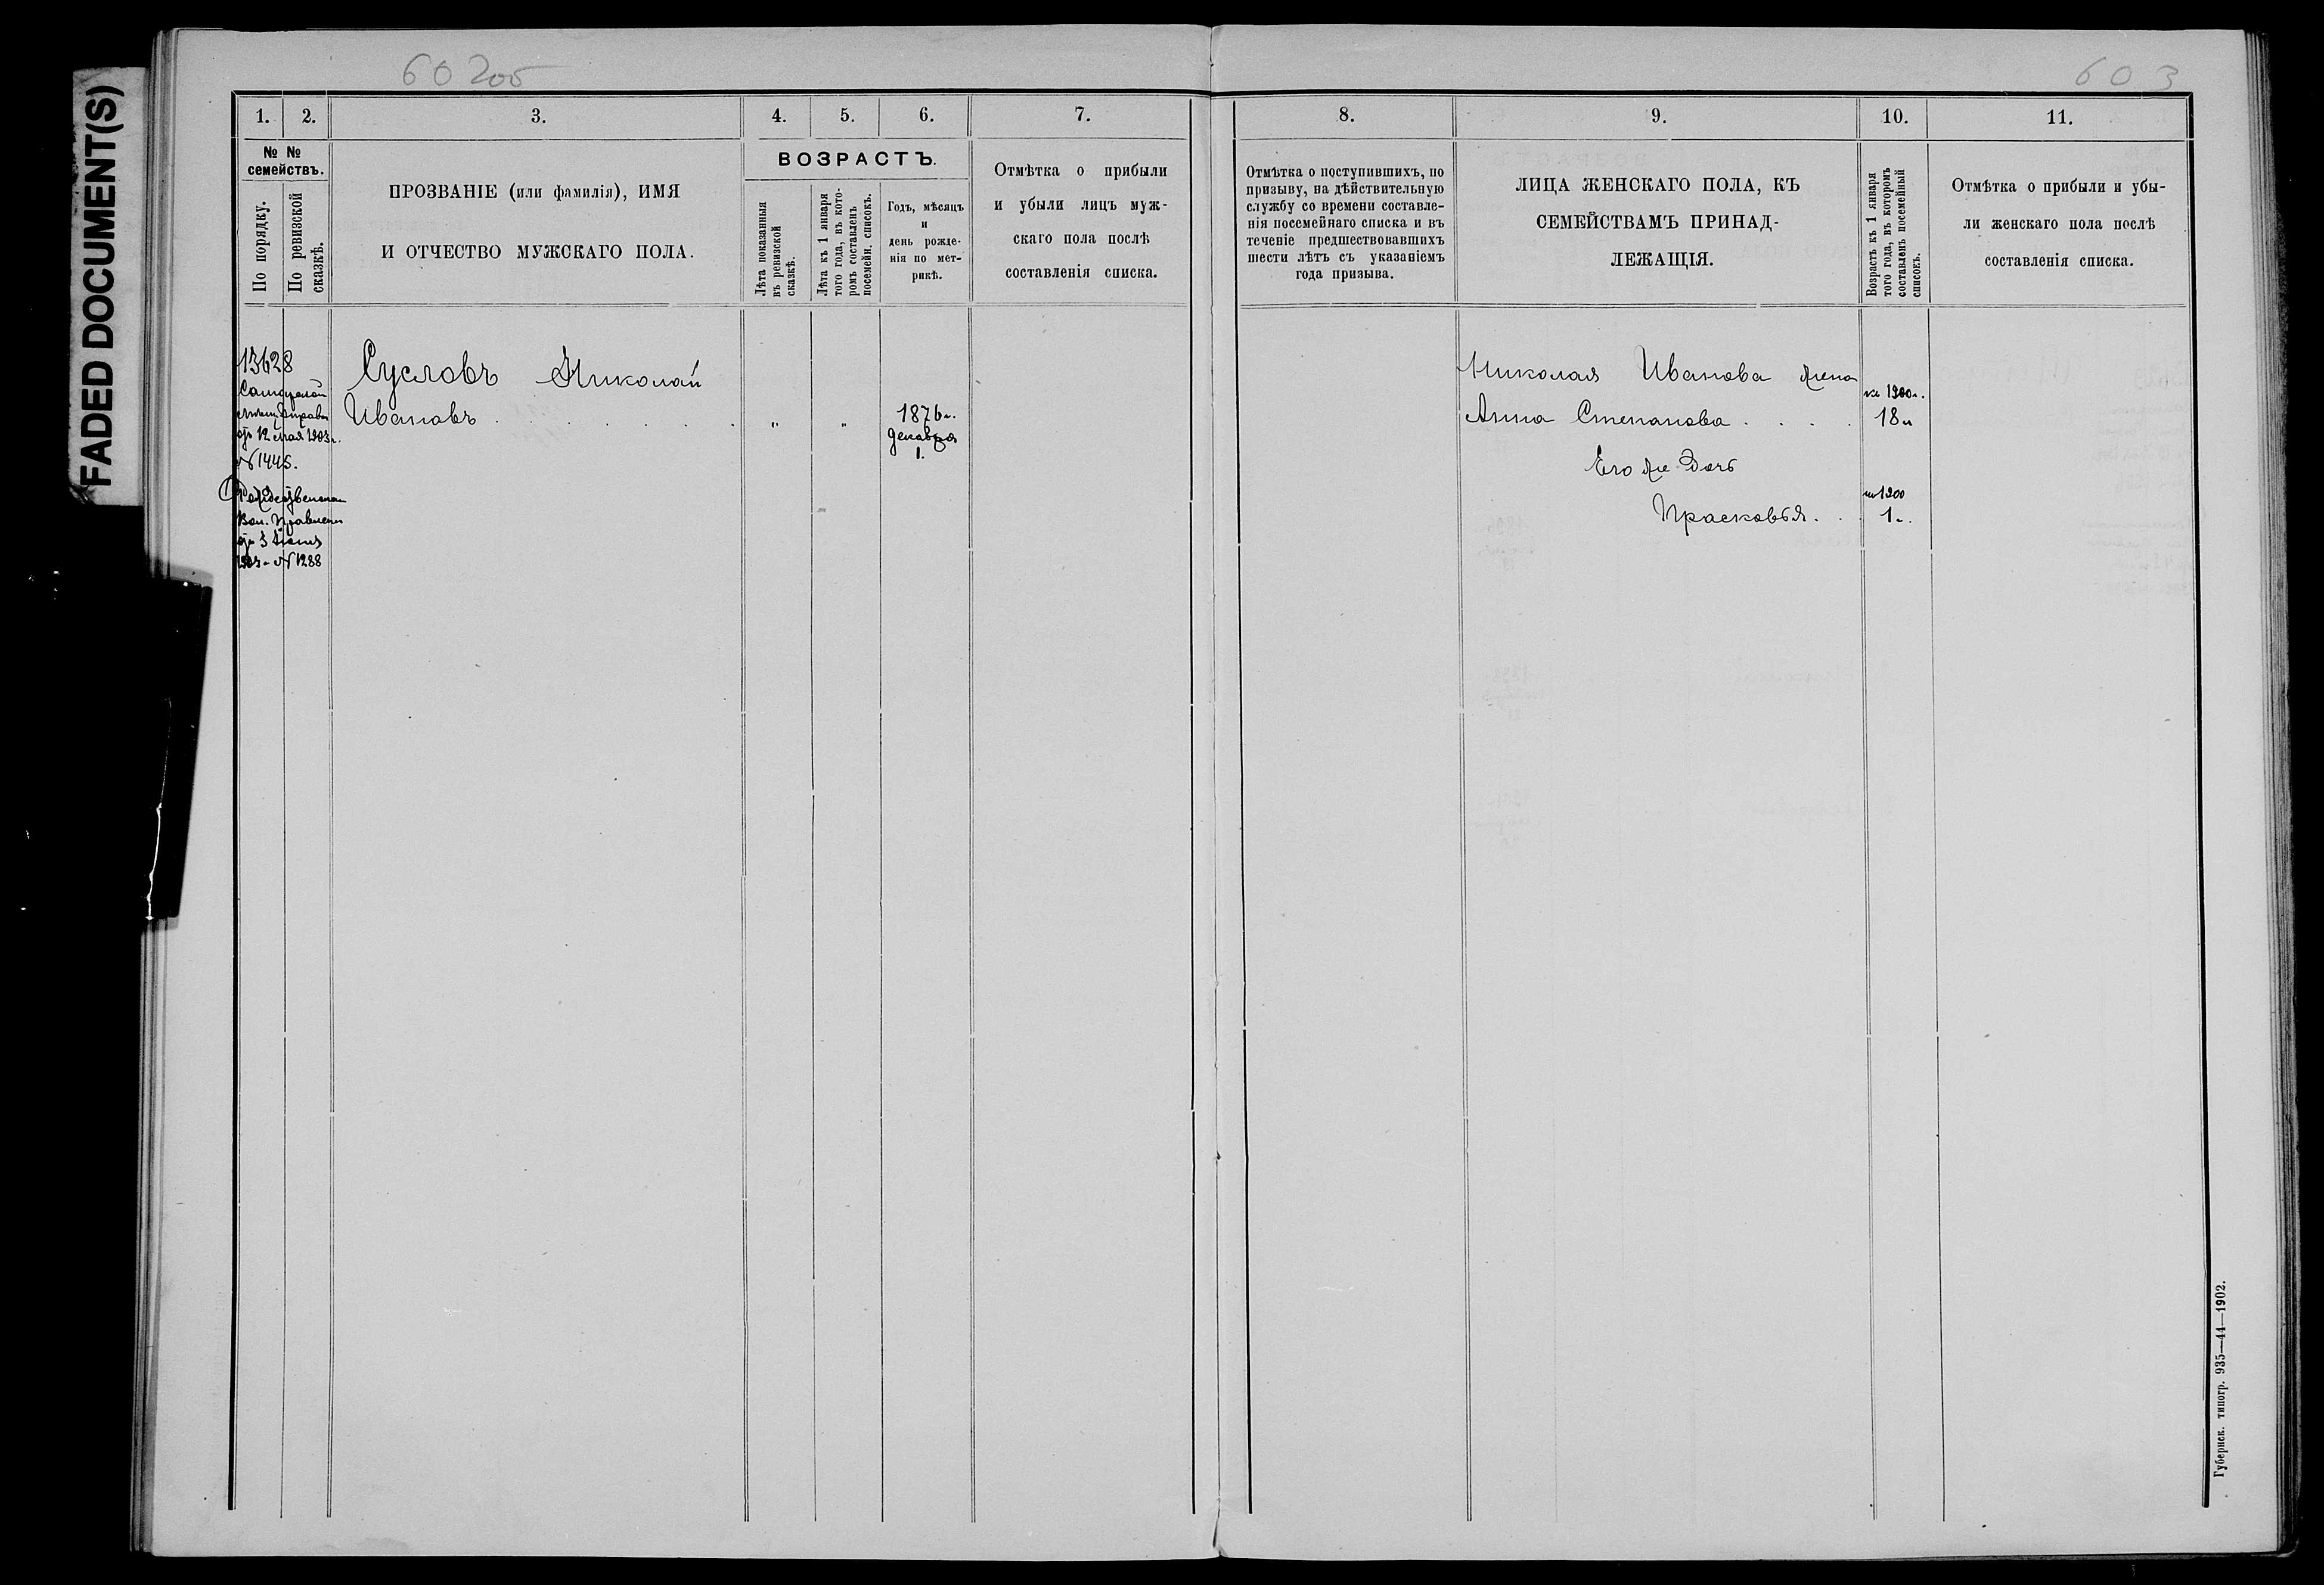 FADED DOCUMENT(S)
602об
603
1.
2.
3.
4.
5.
6.
7.
№ №
семействъ.
По порядку.
По ревизской
сказкѣ.
ПРОЗВАНІЕ (или фамилія), ИМЯ
И ОТЧЕСТВО МУЖСКАГО ПОЛА.
ВОЗРАСТЪ.
Лѣта показанныя
въ ревизской
сказкѣ.
Лѣта къ 1 января
того года, въ кото-
ромъ составленъ
посемейн. списокъ.
Годъ, мѣсяцъ
и
день рожде-
нія по мет-
рикѣ.
Отмѣтка о прибыли
и убыли лицъ муж-
скаго пола послѣ
составленія списка.
13628
от 12 мая 1903 г.
№ 1445.
Вол. Правленія
от 3 Іюня
1903 г. № 1288
Сусловъ Николай
Ивановъ . . . . . . „ „
1876 г.
декабря
1.
8.
9.
10.
11.
Отмѣтка о поступившихъ, по
призыву, на дѣйствительную
службу со времени составле-
нія посемейнаго списка и въ
теченіе предшествовавшихъ
шести лѣтъ съ указаніемъ
года призыва.
ЛИЦА ЖЕНСКАГО ПОЛА, КЪ
СЕМЕЙСТВАМЪ ПРИНАД-
ЛЕЖАЩІЯ.
Возрастъ къ 1 января
того года, въ которомъ
составленъ посемейный
списокъ.
Отмѣтка о прибыли и убы-
ли женскаго пола послѣ
составленія списка.
Николая Иванова жена
на 1900 г.
Анна Степанова . . . . 18 л
Его же дочь
на 1900
Прасковья . . 1 г.
Губернск. типогр. 935—44—1902.